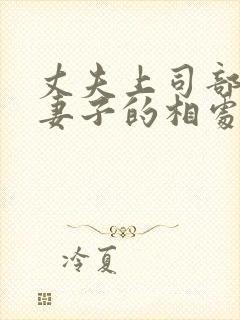 丈夫上司部
妻子的相处
冷夏